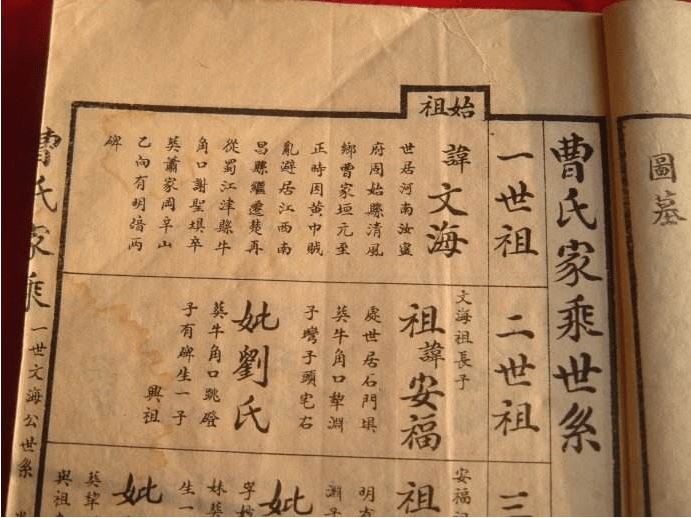 圖墓
曹氏家乘世系
始祖
一世祖
諱文海
世居河南汝寧
府固始縣清風
鄉曹家垣元至
正時因黃巾賊
亂避居江西南
昌縣繼遷楚再
從蜀江津縣牛
角口謝聖垻卒
葬蕭家岡卓山
乙向有明堦兩
碑
二世祖
文海祖長子
祖諱安福
處世居石門垻
葬牛角口犂淵
子灣子頭宅右
妣劉氏
葬牛角口跳磴
子有碑生一子
興祖
三
安福
祖
明有
淵子
妣
妹葬
生一
妣
葬犂
曹氏家乘
一世文海公世系